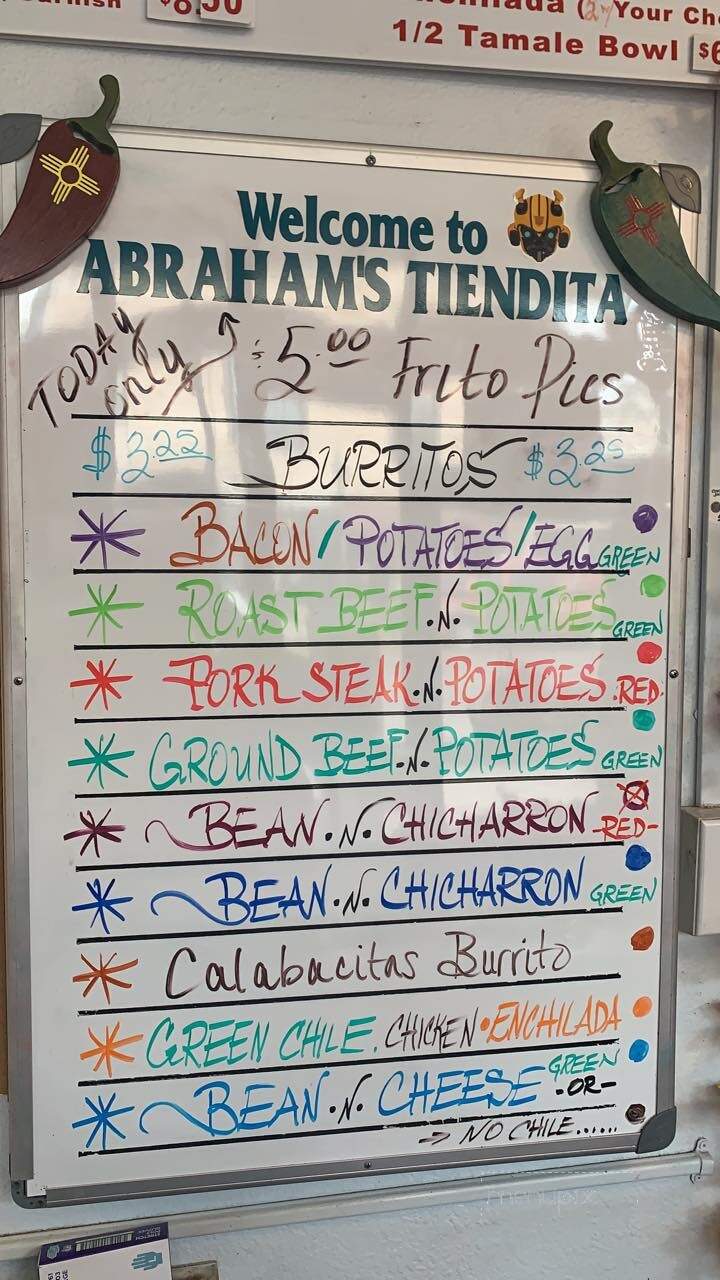 $8.50
1/2 Tamale Bowl
Your
Welcome to
ABRAHAM'S TIENDITA
TODAY only
$5.00 Frito Pies
$3.25 BURRITOS $3.25
BACON/POTATOES/EGG GREEN
ROAST BEEF.N.POTATOES GREEN
PORK STEAK.N.POTATOES.RED.
GROUND BEEF.N.POTATOES GREEN
BEAN.N.CHICHARRON -RED-
BEAN.N.CHICHARRON GREEN
Calabacitas Burrito
GREEN CHILE.CHICKEN•ENCHILADA
BEAN.N.CHEESE GREEN
-OR-
→ NO CHILE......
menupix